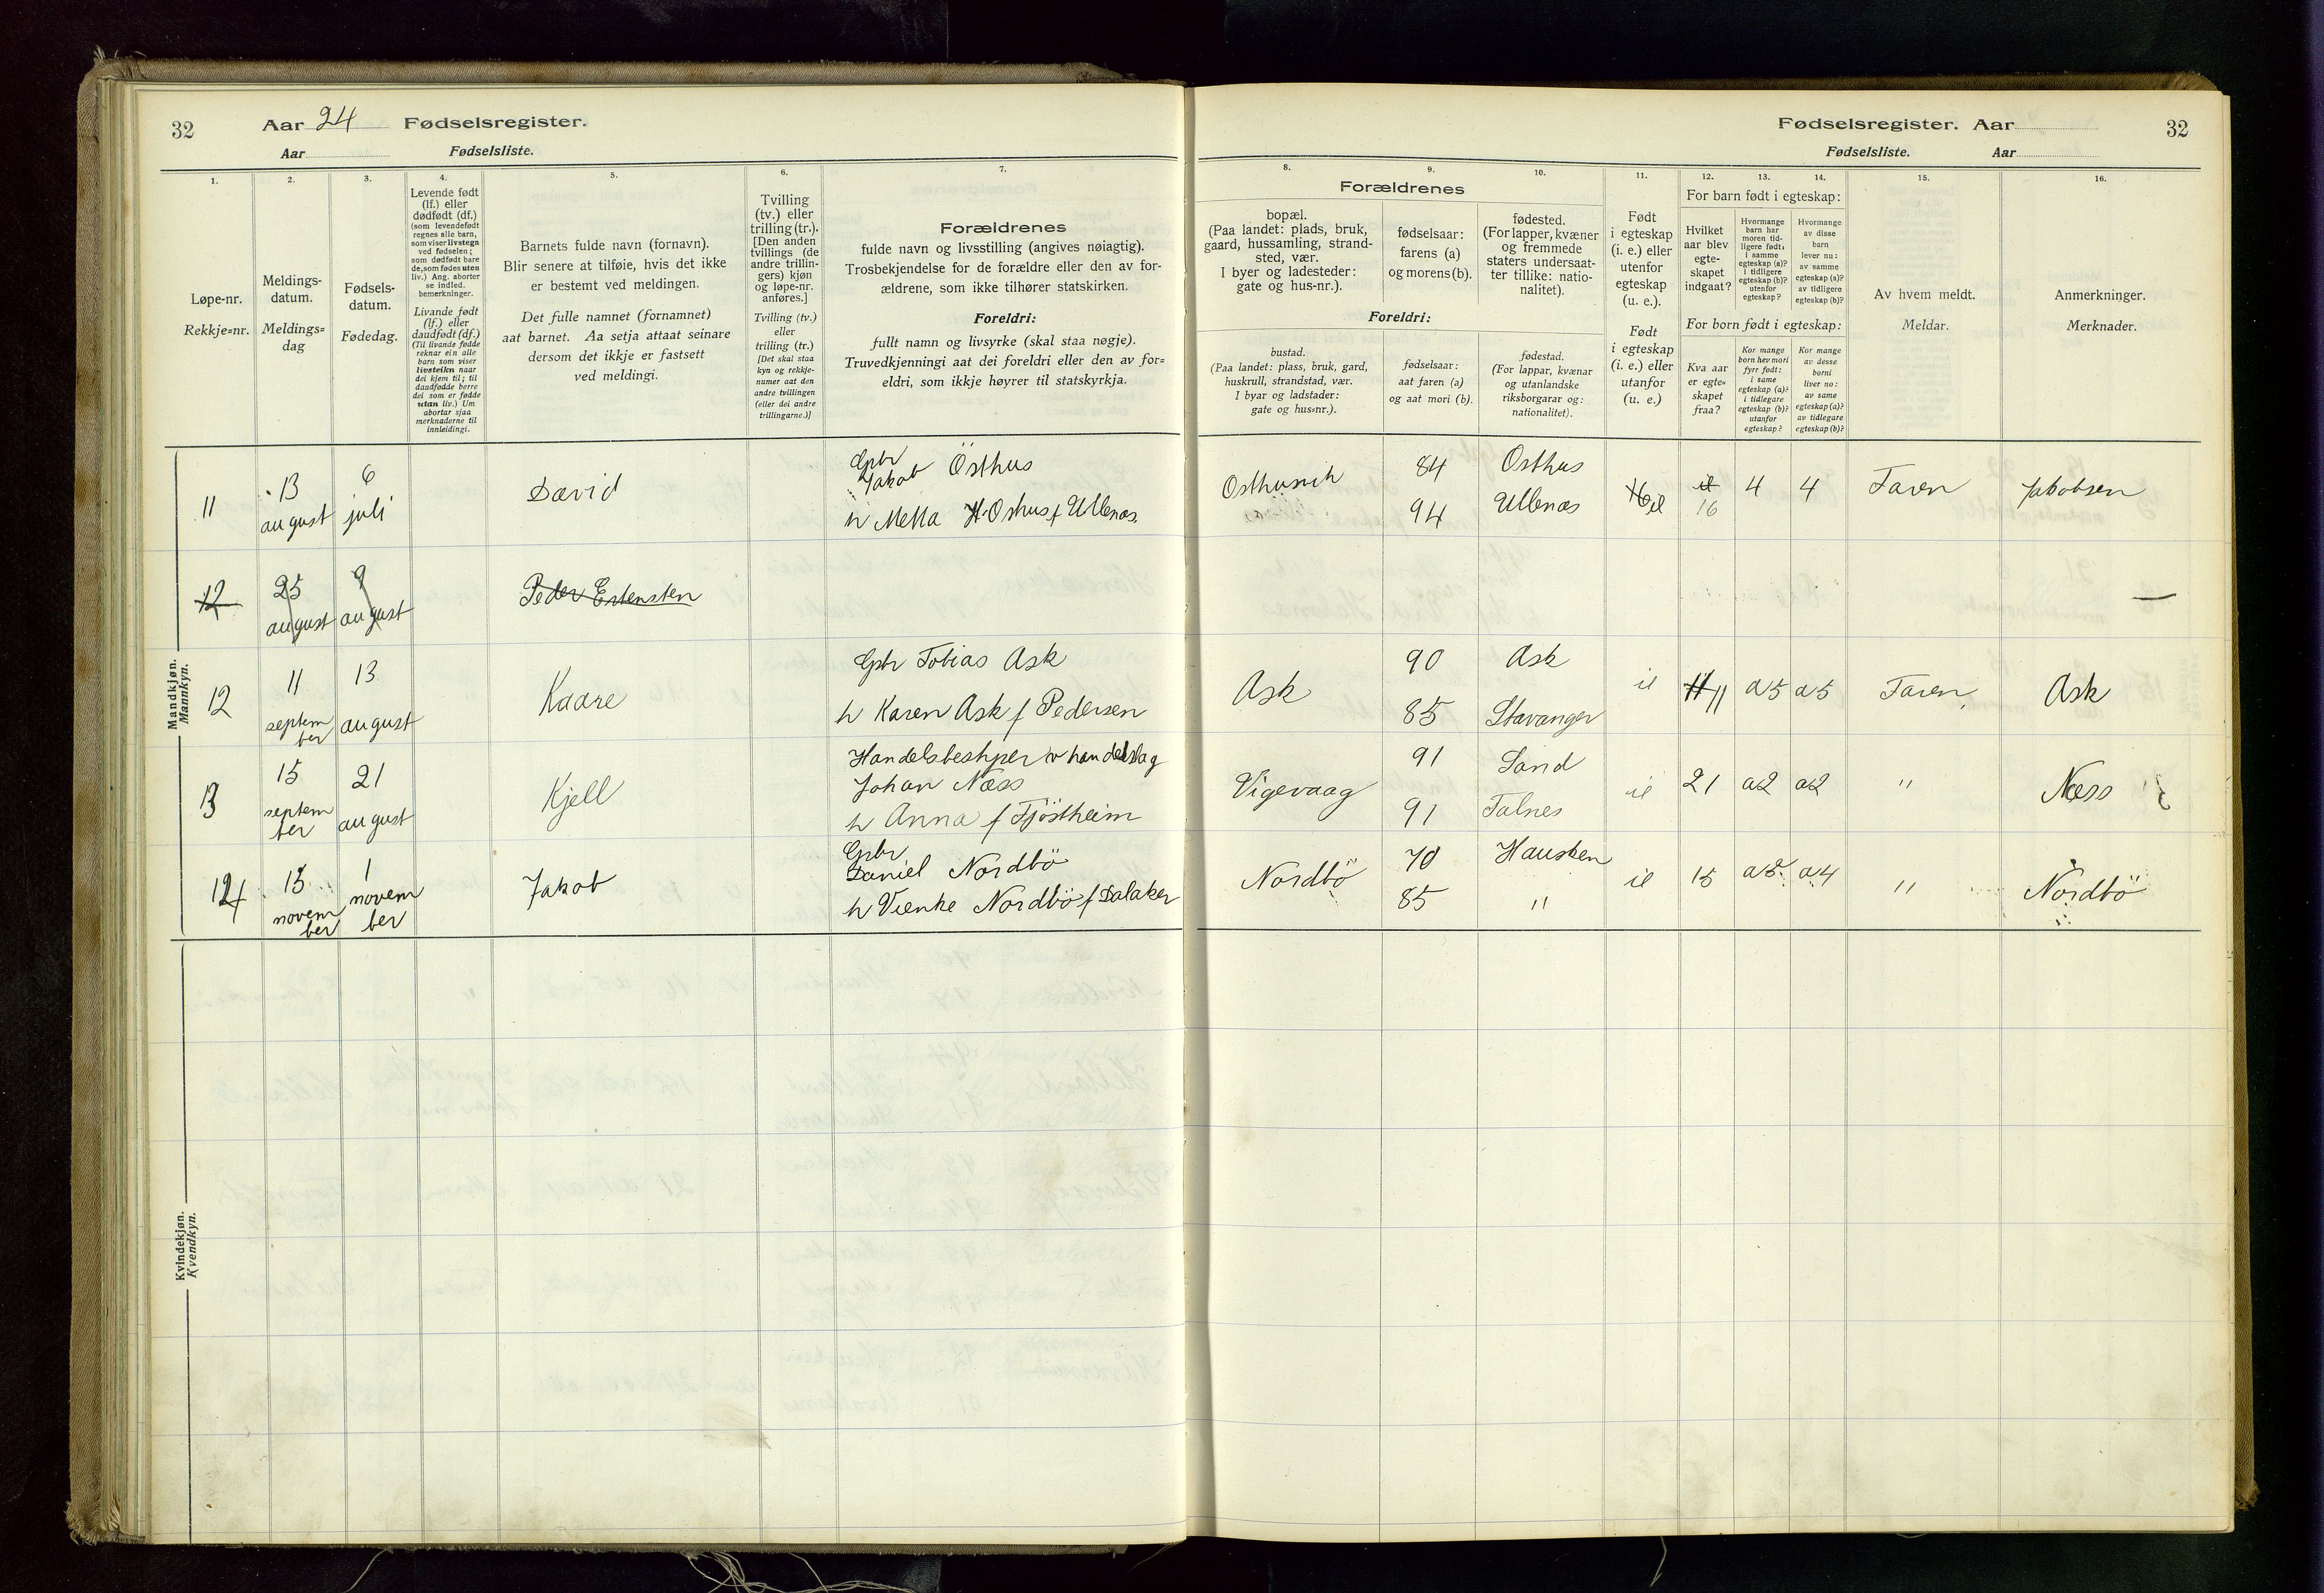 32
Aar 24 Fødselsregister.
Aar Fødselsliste.
Fødselsregister. Aar
32
Fødselsliste. Aar
1.
2.
3.
4.
5.
6.
7.
8.
9.
10.
11.
12.
13.
14.
15.
16.
Løpe-nr.
Rekkje=nr.
Meldings-
datum.
Meldings=
dag
Fødsels-
datum.
Fødedag.
Levende født
(lf.) eller
dødfødt (df.)
(som levendefødt
regnes alle barn,
som viser livstegn
ved fødselen;
som dødfødt bare
de, som fødes uten
liv.) Ang. aborter
se indled.
bemerkninger.
Livande født
(lf.) eller
daudfødt (df.)
(Til livande fødde
reknar ein alle
barn som viser
livsteikn naar
dei kjem til; til
daudfødde berre
dei som er fødde
utan liv.) Um
abortar sjaa
merknaderne til
innleidingi.
Barnets fulde navn (fornavn).
Blir senere at tilføie, hvis det ikke
er bestemt ved meldingen.
Det fulle namnet (fornamnet)
aat barnet. Aa setja attaat seinare
dersom det ikkje er fastsett
ved meldingi.
Tvilling
(tv.) eller
trilling (tr.).
[Den anden
tvillings (de
andre trillin-
gers) kjøn
og løpe-nr.
anføres.]
Tvilling (tv.)
eller
trilling (tr.)
[Det skal staa
kyn og rekkje-
numer aat den
andre tvillingen
(eller dei andre
trillingarne.)]
Forældrenes
fulde navn og livsstilling (angives nøiagtig).
Trosbekjendelse for de forældre eller den av for-
ældrene, som ikke tilhører statskirken.
Foreldri:
fullt namn og livsyrke (skal staa nøgje).
Truvedkjenningi aat dei foreldri eller den av for=
eldri, som ikkje høyrer til statskyrkja.
Forældrenes
bopæl.
(Paa landet: plads, bruk,
gaard, hussamling, strand-
sted, vær.
I byer og ladesteder:
gate og hus-nr.).
fødselsaar:
farens (a)
og morens (b).
fødested.
(For lapper, kvæner
og fremmede
staters undersaat-
ter tillike: natio-
nalitet).
Foreldri:
bustad.
(Paa landet: plass, bruk, gard,
huskrull, strandstad, vær.
I byar og ladstader:
gate og hus=nr.).
fødselsaar:
aat faren (a)
og aat mori (b).
fødestad.
(For lappar, kvænar
og utanlandske
riksborgarar og:
nationalitet).
Født
i egteskap
(i. e.) eller
utenfor
egteskap
(u. e.).
Født
i egteskap
(i. e.) eller
utanfor
(u. e.)
For barn født i egteskap:
Hvilket
aar blev
egte-
skapet
indgaat?
Hvormange
barn har
moren tid-
ligere født:
i samme
egteskap (a)?
i tidligere
egteskap (b)?
utenfor
egteskap?
Hvormange
av disse
barn
lever nu:
av samme
egteskap (a)?
av tidligere
egteskap (b)?
For born født i egteskap:
Kva aar
er egte=
skapet
fraa?
Kor mange
born hev mori
fyrr født:
i same
egteskap (a)?
i tidlegare
egteskap (b)?
utanfor
egteskap?
Kor mange
av desse
borni
liver no:
av same
egteskap (a)?
av tidlegare
egteskap (b)?
Av hvem meldt.
Meldar.
Anmerkninger.
Merknader.
Mandkjøn.
Mannkyn.
11 13 august 6 juli David
Gbr Jakob Östhus
h Metta H. Oshus f Ullenæs.
84 Osthus
94 Ullenæs
16 4 4 Faren Jakobsen
12 25 august 9 august Peder Estensten
12 11 september 13 august Kaare
Gbr Tobias Ask
h Karen Ask f Pedersen
Ask 90 Ask
85 Stavanger
11 a5 a5 Faren Ask
13 15 september 21 august Kjell
Johan Næss
h Anna f Tjöstheim
Vigevaag 91 Sand
91 Falnes
21 a2 a2 " Næss
14 15 november 1 november Jakob
Gbr
Daniel Nordbö
h Vienke Nordbö f Dalaker
Nordbö 70 Hausken
85 "
15 a4 " Nordbö
Kvindekjøn.
Kvendkyn.